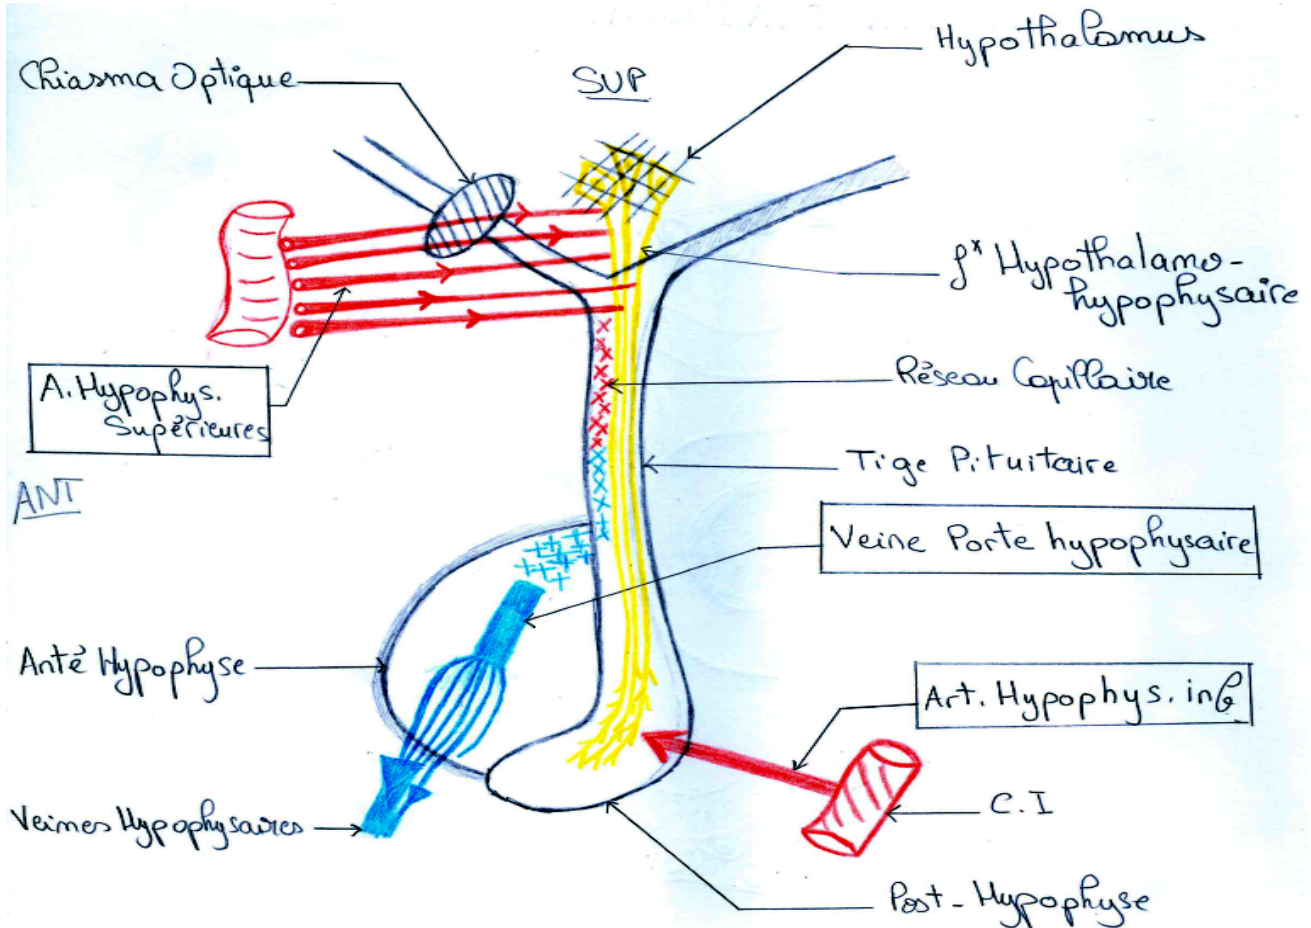 Hypothalamus
Chiasma Optique
SUP
fx Hypothalamo-
hypophysaire
A. Hypophys.
Supérieures
Réseau Capillaire
Tige Pituitaire
ANT
Veine Porte hypophysaire
Anté Hypophyse
Art. Hypophys. inf
C.I
Veines Hypophysaires
Post-Hypophyse